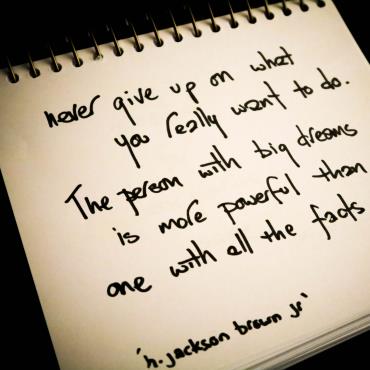 never give up on what
you really want to do.
The person with big dreams
is more powerful than
one with all the facts
'h. jackson brown jr'